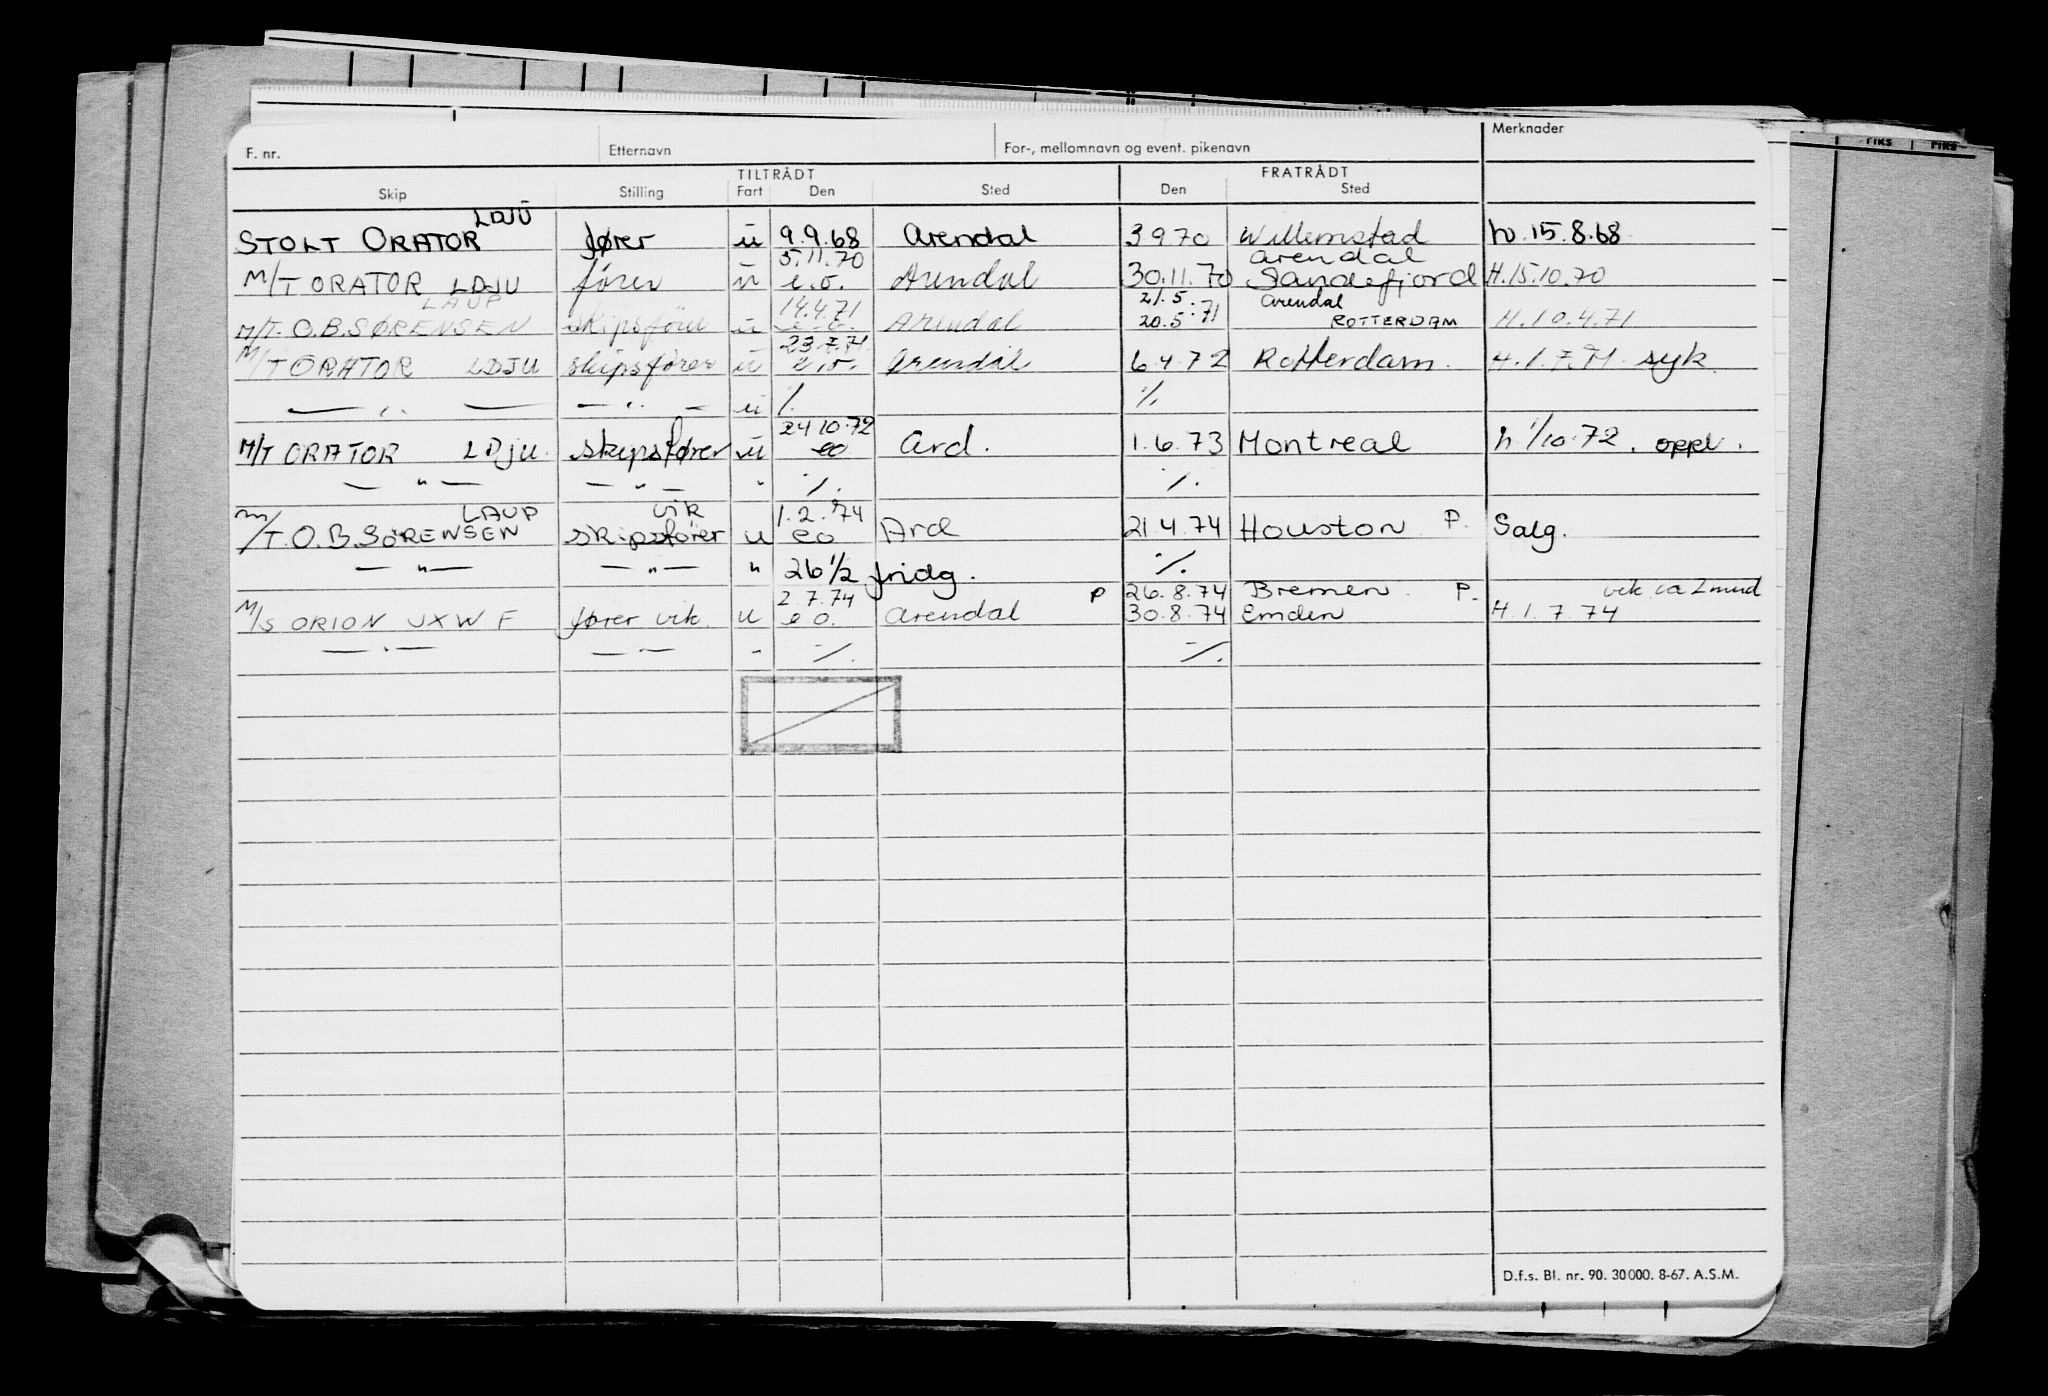 PIKS PIKS
Merknader
F. nr. Etternavn For-, mellomnavn og event. pikenavn
TILTRÅDT FRATRÅDT
Skip Stilling Fart Den Sted Den Sted
LDJU
STOLT ORATOR fører u 9.9.68 Arendal 3 9 70 Willemstad h. 15.8.68
5.11.70 Arendal
M/T ORATOR LDJU fører u e.o. Arendal 30.11.70 Sandefjord H.15.10.70
LAUP 14.4.71 21.5. Arendal
M/T. O.B. SØRENSEN skipsfører u e.o. Arendal 20.5.71 ROTTERDAM H.10.4.71
23.7.71
M/T ORATOR LDJU skipsfører u e.o. Arendal 6.4.72 Rotterdam. H.1.7.71 syk.
— " — — " — u %. %.
24 10.72
M/T ORATOR LDJU. skipsfører u eo Ard. 1.6.73 Montreal h 1/10.72. oppl.
— " — — " — " %. %.
LAUP vik 1.2.74
M/T. O.B. SØRENSEN skipsfører u eo Ard 21.4.74 Houston P. Salg.
— " — — " — " 26 1/2 fridg. %.
2.7.74 P 26.8.74 Bremen. P. vik ca 2 mnd
M/S ORION JXWF fører vik. u eo. Arendal 30.8.74 Emden H.1.7.74
— " — — " — " %. %.
D.f.s. Bl. nr. 90. 30000. 8-67. A.S.M.